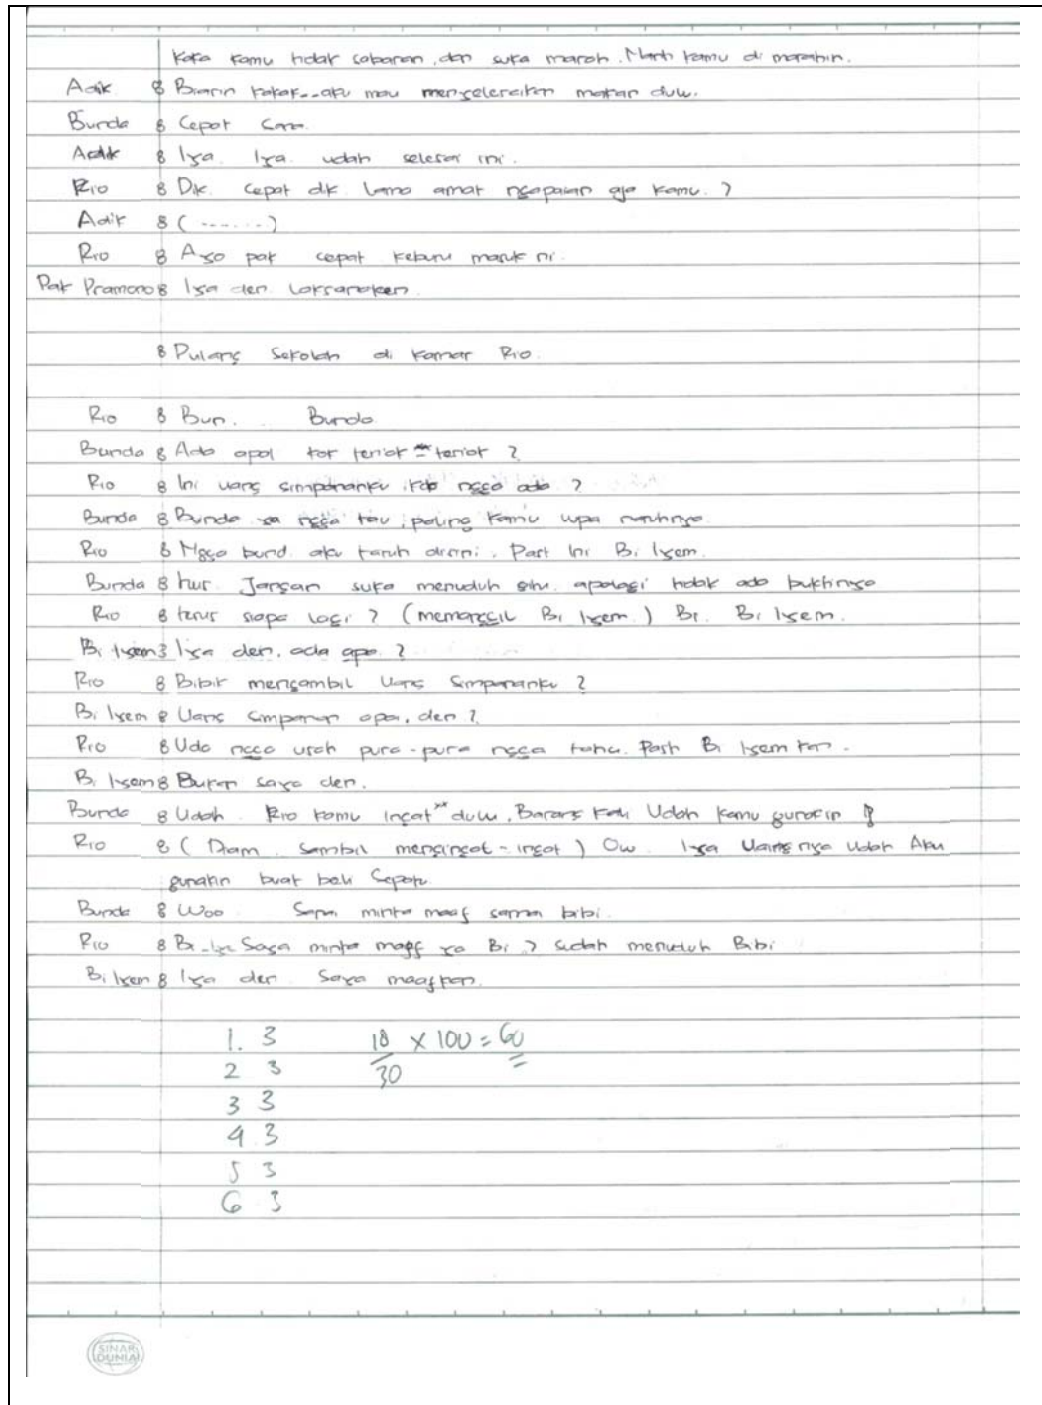 Kaka kamu tidak sabaran, dan suka marah. Nanti kamu di marahin.
Adik : Biarin kakak.. aku mau menyelesaikan makan dulu.
Bunda : Cepat
Adik : Iya. Iya. udah selesai ini.
Rio : Dik. Cepat dik. Lama amat ngapaian aja kamu. ?
Adik : (.......)
Rio : Ayo pak cepat keburu masuk ni.
Pak Pramono : Iya den. Laksanaken.
: Pulang Sekolah di kamar Rio.
Rio : Bun. Bunda
Bunda : Ada apa kok teriak - teriak ?
Rio : Ini uang simpananku ko ngga ada ?
Bunda : Bunda ya ngga tau, paling kamu lupa naruhnya
Rio : Ngga bund. aku taruh disini. Pasti Ini Bi Iyem.
Bunda : hus. Jangan suka menuduh gitu. apalagi tidak ada buktinya
Rio : terus siapa lagi ? (memanggil Bi Iyem.) Bi. Bi Iyem.
Bi Iyem : Iya den, ada apa ?
Rio : Bibik mengambil Uang Simpananku ?
Bi Iyem : Uang Simpanan apa, den ?
Rio : Uda ngga usah pura-pura ngga tahu. Pasti Bi Iyem kan.
Bi Iyem : Bukan saya den.
Bunda : Udah. Rio kamu ingat" dulu, Barang kali Udah kamu gunakin ?
Rio : (Diam sambil mengingat-ingat) Ow. Iya Uangnya Udah Aku
gunakin buat beli Sepatu
Bunda : Woo. Sana minta maaf sama bibi.
Rio : Bi Saya minta maaf ya Bi ? Sudah menuduh Bibi
Bi Iyem : Iya den. Saya maafkan.
1. 3 18 x 100 = 60
2 3 30
3 3
4 3
5 3
6 3
SINAR
DUNIA